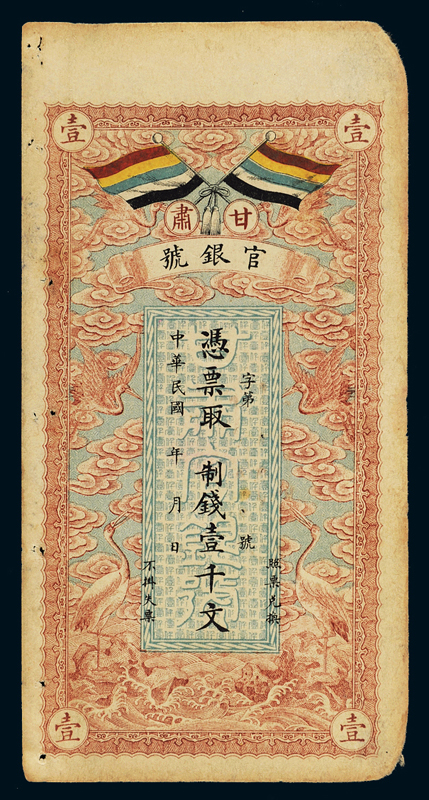 壹
壹
甘肅
官銀號
字第 號
憑票取制錢壹千文
中華民國 年 月 日
票兌換
不掛失票
壹
壹